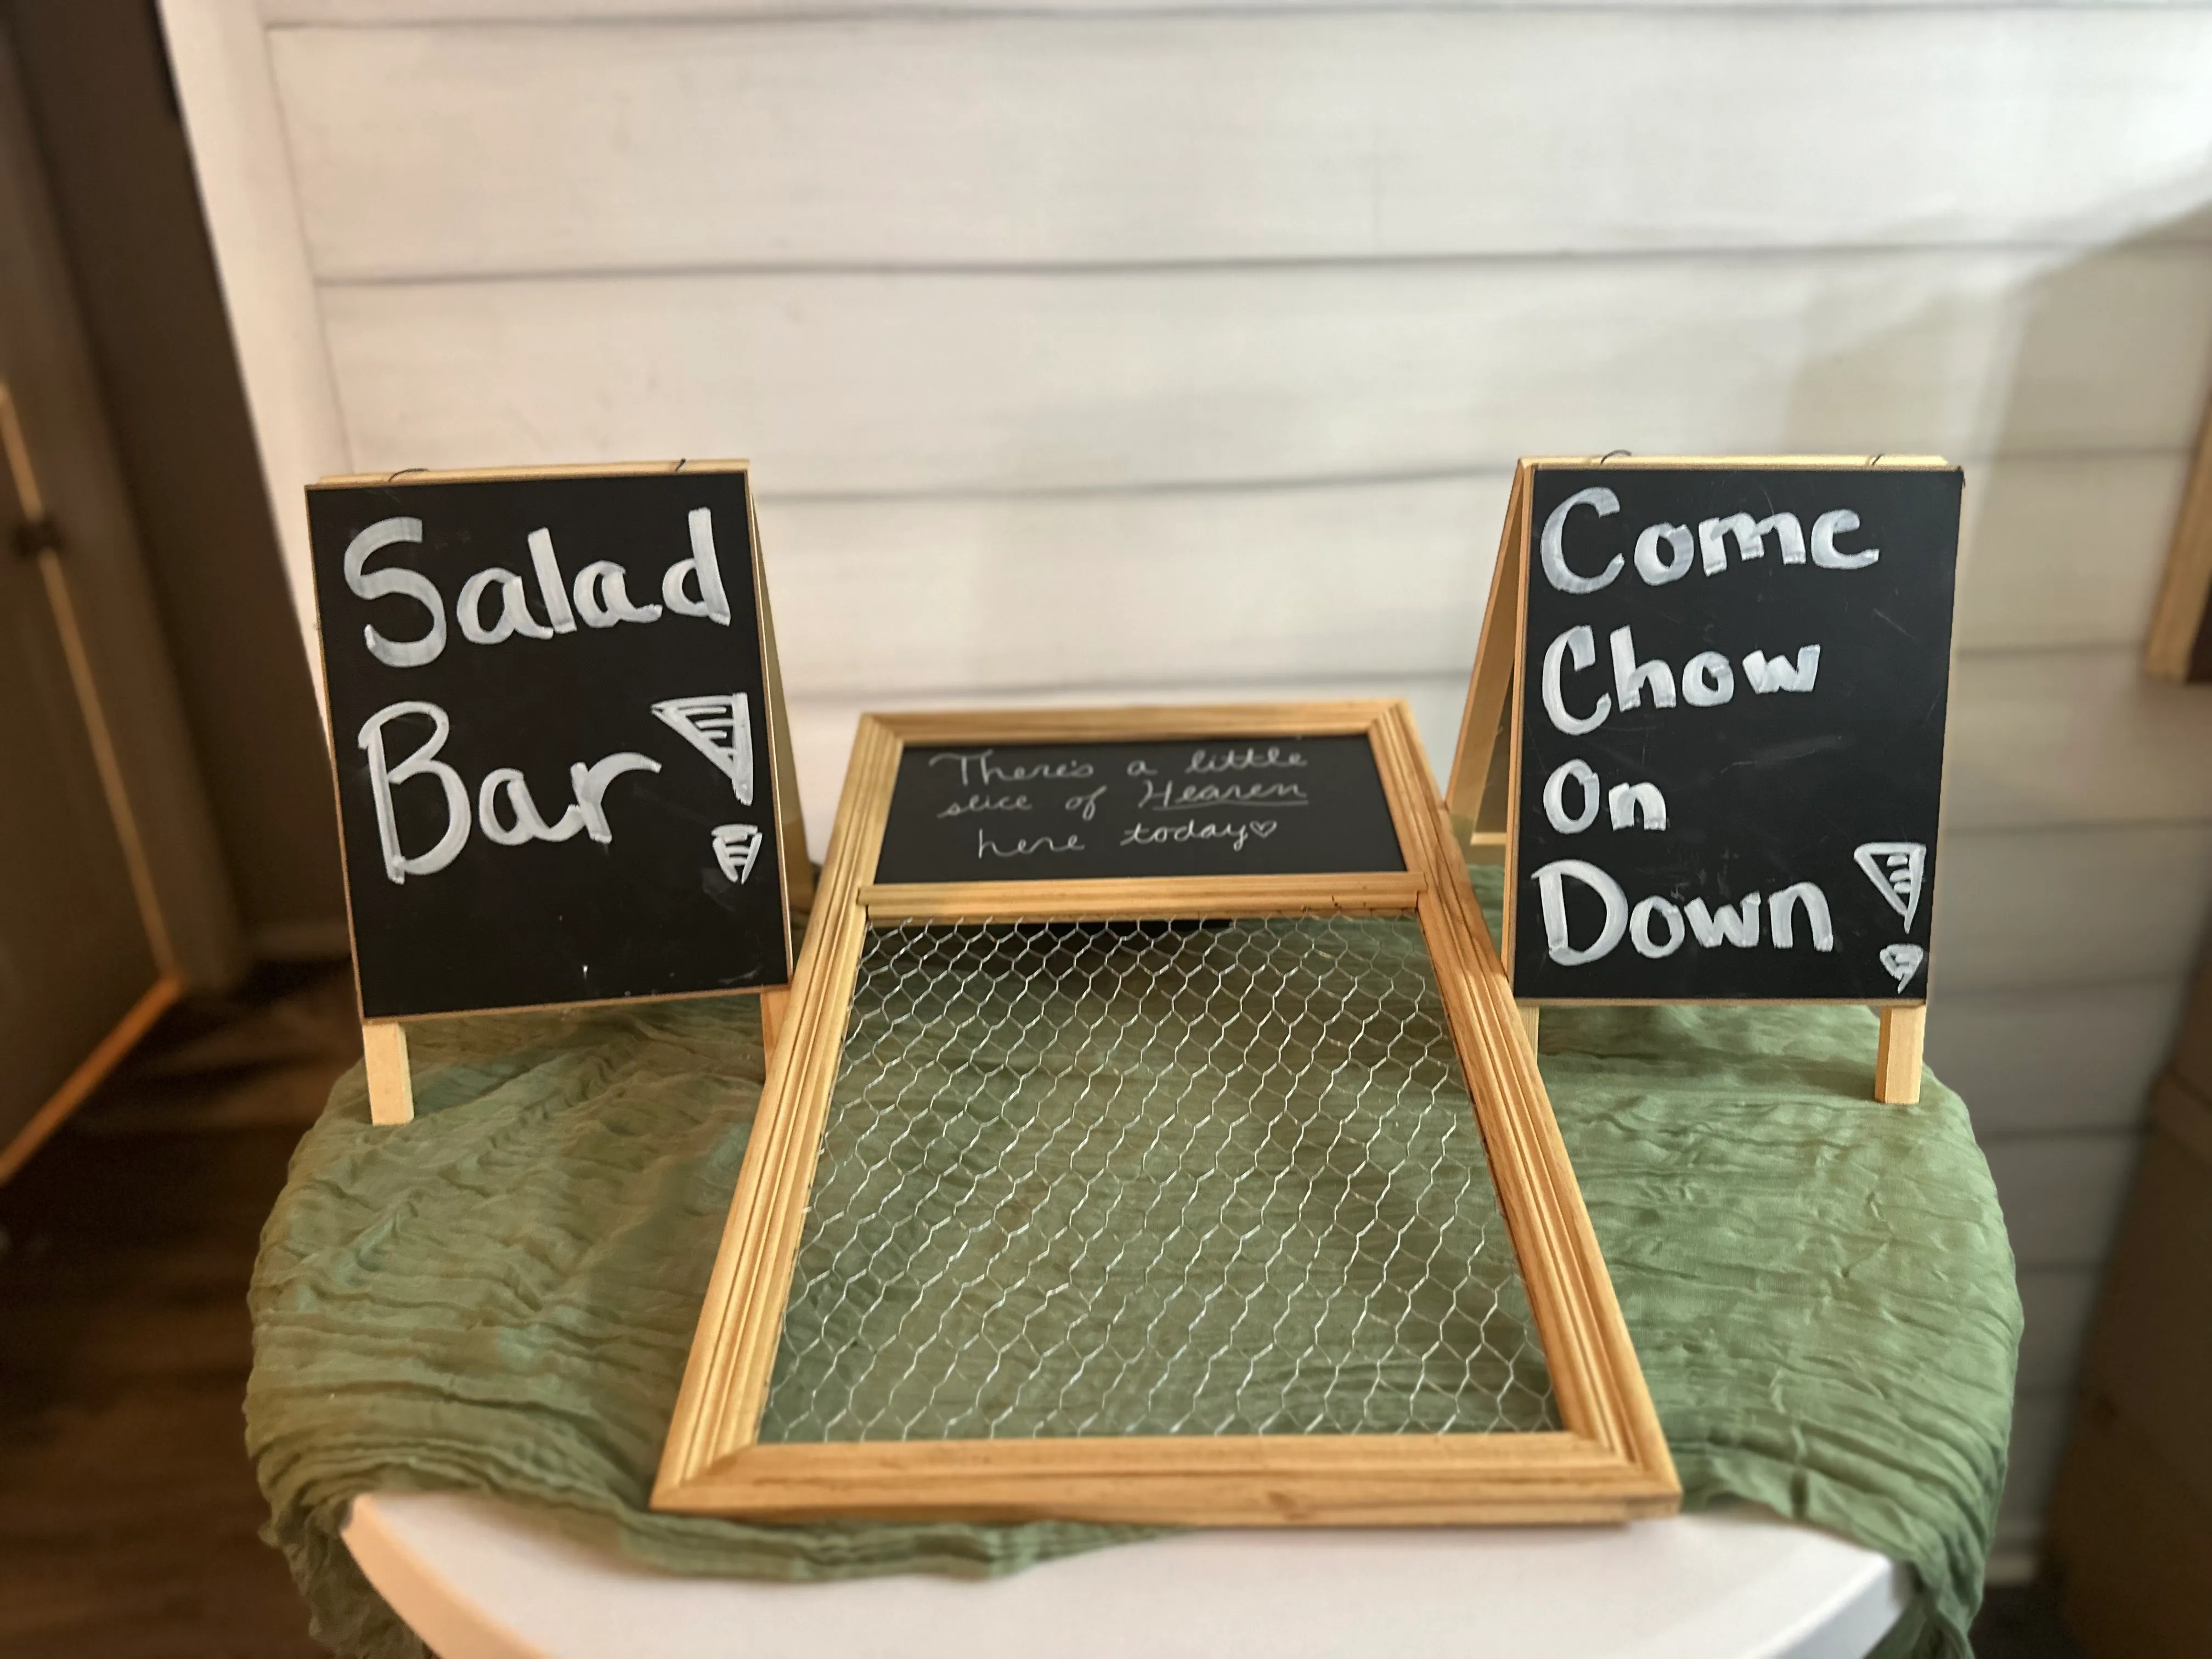 Salad
Bar!
There's a little
slice of Heaven
here today♡
Come
Chow
On
Down!